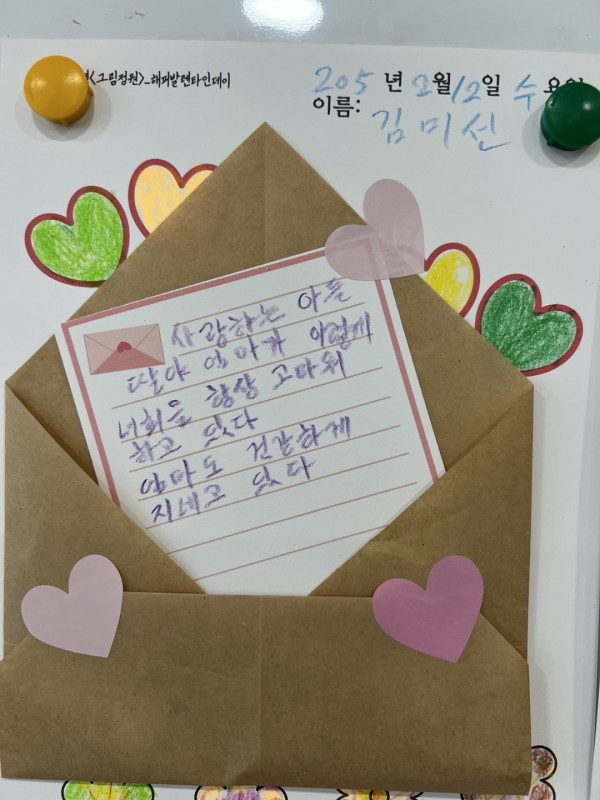 <그림정원>_해피발렌타인데이
205 년 2월 12일 수
이름: 김미선
사랑하는 아들
딸아 엄마가 이렇게
너희을 항상 고마워
하고 있다
엄마도 건강하게
지네고 있다